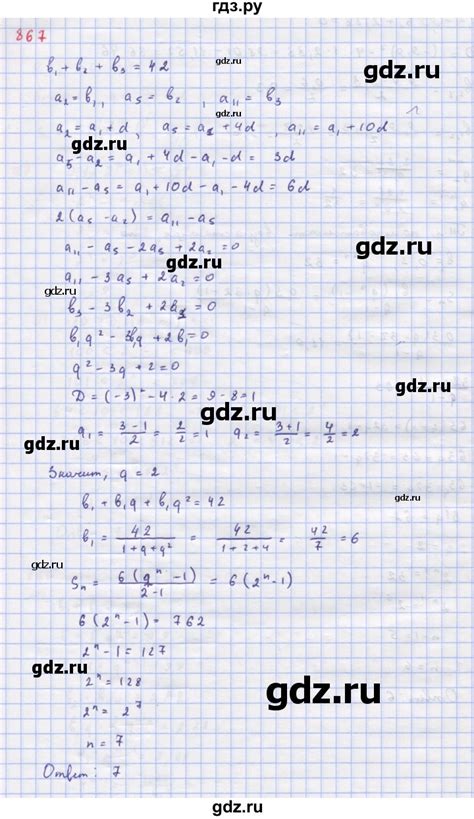 гдз.ру
867
b₁ + b₂ + b₃ = 42
a₂ = b₁, a₅ = b₂, a₁₁ = b₃
a₂ = a₁ + d, a₅ = a₁ + 4d, a₁₁ = a₁ + 10d
gdz.ru
gdz.ru
a₅ - a₂ = a₁ + 4d - a₁ - d = 3d
a₁₁ - a₅ = a₁ + 10d - a₁ - 4d = 6d
2(a₅ - a₂) = a₁₁ - a₅
a₁₁ - a₅ - 2a₅ + 2a₂ = 0
gdz.ru
gdz.ru
a₁₁ - 3a₅ + 2a₂ = 0
gdz.ru
b₃ - 3b₂ + 2b₁ = 0
b₁q² - 3b₁q + 2b₁ = 0
gdz.ru
q² - 3q + 2 = 0
gdz.ru
D = (-3)² - 4·2 = 9 - 8 = 1
gdz.ru
q₁ = (3 - 1)/2 = 2/2 = 1 q₂ = (3 + 1)/2 = 4/2 = 2
gdz.ru
Значит, q = 2
b₁ + b₁q + b₁q² = 42
gdz.ru
b₁ = 42/(1 + q + q²) = 42/(1 + 2 + 4) = 42/7 = 6
gdz.ru
Sₙ = 6(qⁿ - 1)/(2 - 1) = 6(2ⁿ - 1)
6(2ⁿ - 1) = 762
gdz.ru
2ⁿ - 1 = 127
gdz.ru
2ⁿ = 128
gdz.ru
2ⁿ = 2⁷
n = 7
gdz.ru
Ответ: 7
gdz.ru